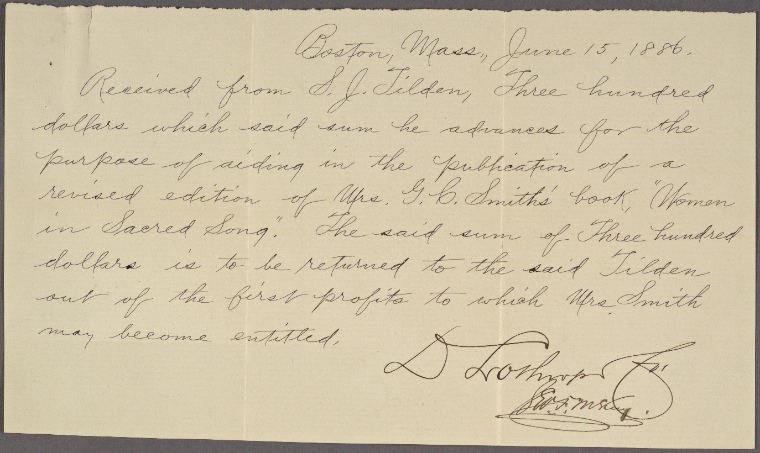 Boston, Mass., June 15, 1886.
Received from S. J. Tilden, Three hundred
dollars which said sum he advances for the
purpose of aiding in the publication of a
revised edition of Mrs. G. C. Smith's book, "Women
in Sacred Song". The said sum of Three hundred
dollars is to be returned to the said Tilden
out of the first profits to which Mrs. Smith
may become entitled.
D Lothrop